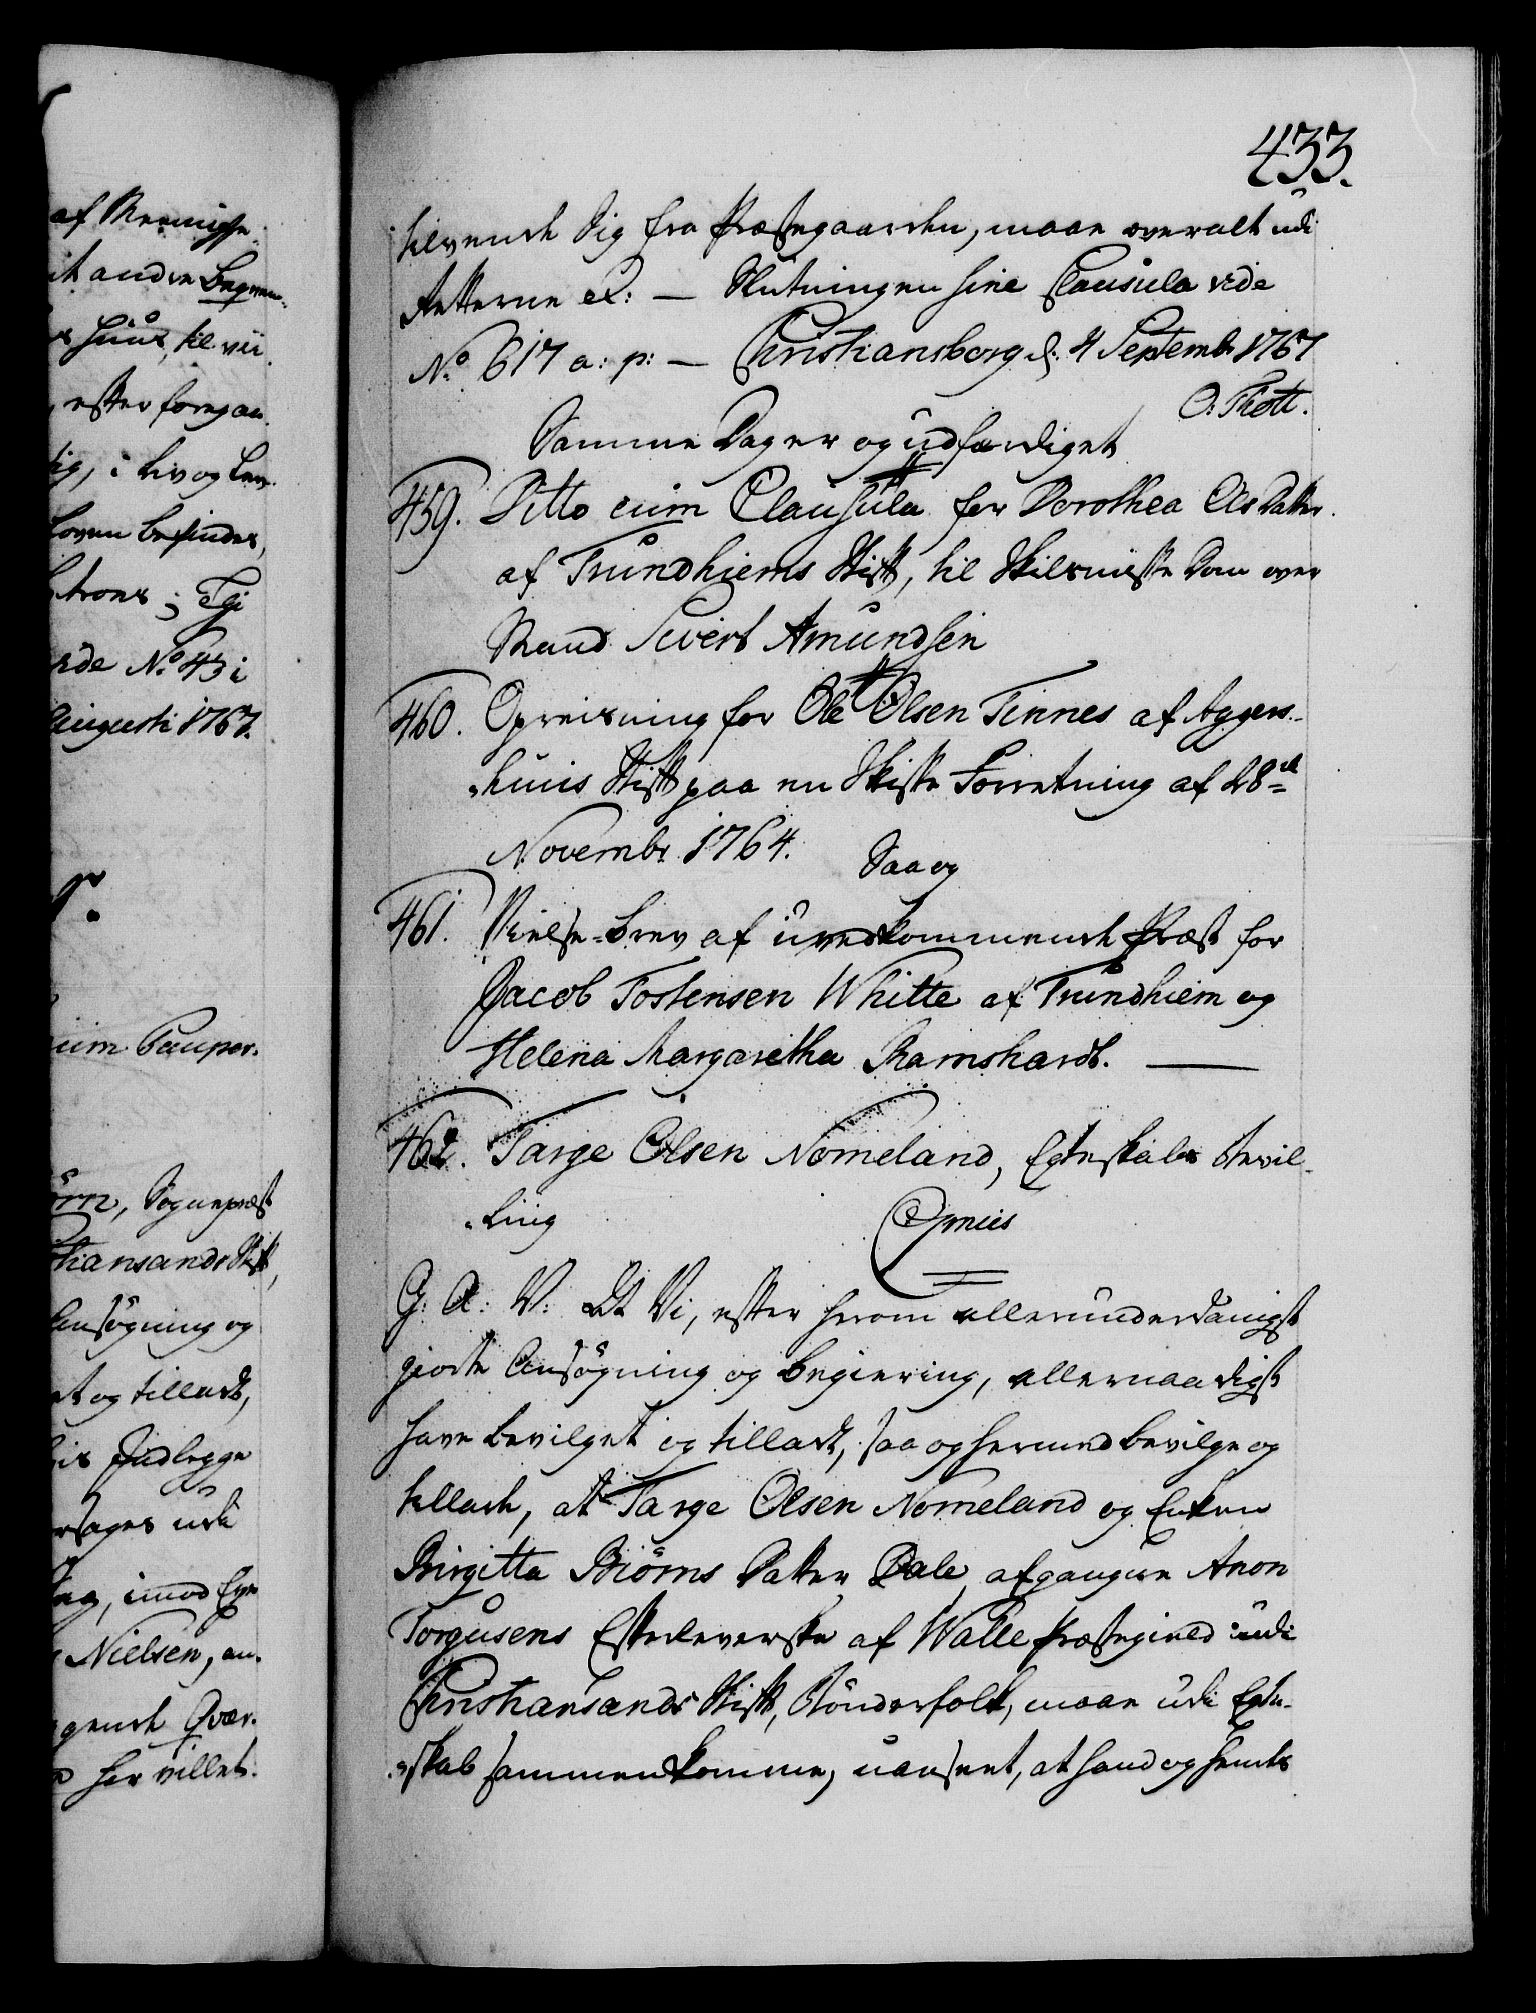 af
it andre Begvem-
s Huus, til vii
, efter foregaa-
lig, i Liv og Lev-
Loven befindes,
trones; Tji
vide No 43 i
Augusti 1767.
cum Pauper.
örn, Sognepræst
tiansands Stift,
Ansøgning og
et og tilladt,
his Indlegge
rsages udi
ing, imod Egne
Nielsen, an-
gende Qvær-
e har villet.
433.
tilvendt sig fra Præstegaarden, maae overalt udi
Retterne etc: — Slutningen sine Clausula vide
No. 617 a: p: — Christiansborg d: 4 Septembr 1767
O: Thott.
Samme Dag er og udfærdiget
459. Ditto cum Clausula for Dorothea OlsDatter
af Trundhiems Stift, til Skilsmisse Dom over
Mand Sivert Amundsen
460. Opreisning for Ole Olsen Tinnes af Aggers-
huus Stift paa en Skifte Forretning af 28de
Novembr 1764.
Saa og
461. Vielse-brev af uvedkommende Præst for
Jacob Tostensen Whitte af Trundhiem og
Helena Margaretha Ramshardt. —
462. Targe Olsen Nomeland, Egteskabs Bevil-
ling Gratis
G: A: V: At Vi, efter herom allerunderdanigst
giorte Ansøgning og Begiering, allernaadigst
have bevilget og tilladt, saa og hermed bevilge og
tillade, at Targe Olsen Nomeland og Enken
Birgitta Biörns Datter Dale, afgangne Anon
Torgusens Efterleverske af Walle Præstegield udi
Christiansands Stift, Bønderfolk, maae udi Egte-
skab sammenkomme, uanseet, at hand og hendes